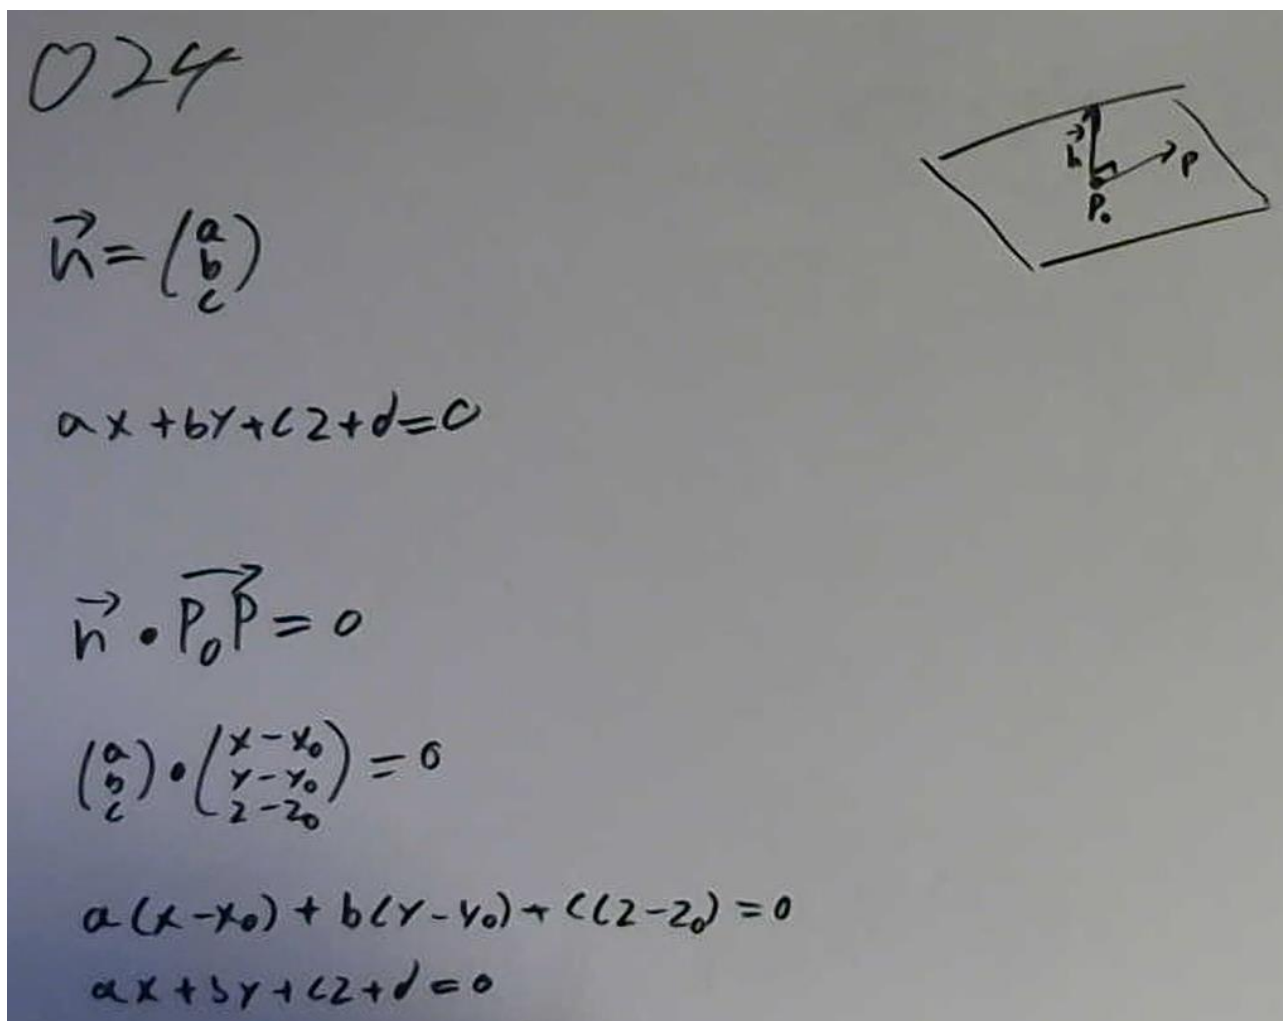 024
n⃗ = (a b c)
ax + by + cz + d = 0
n⃗ • P₀P⃗ = 0
(a b c) • (x - x₀ y - y₀ z - z₀) = 0
a(x - x₀) + b(y - y₀) + c(z - z₀) = 0
ax + by + cz + d = 0
n⃗
P
P₀